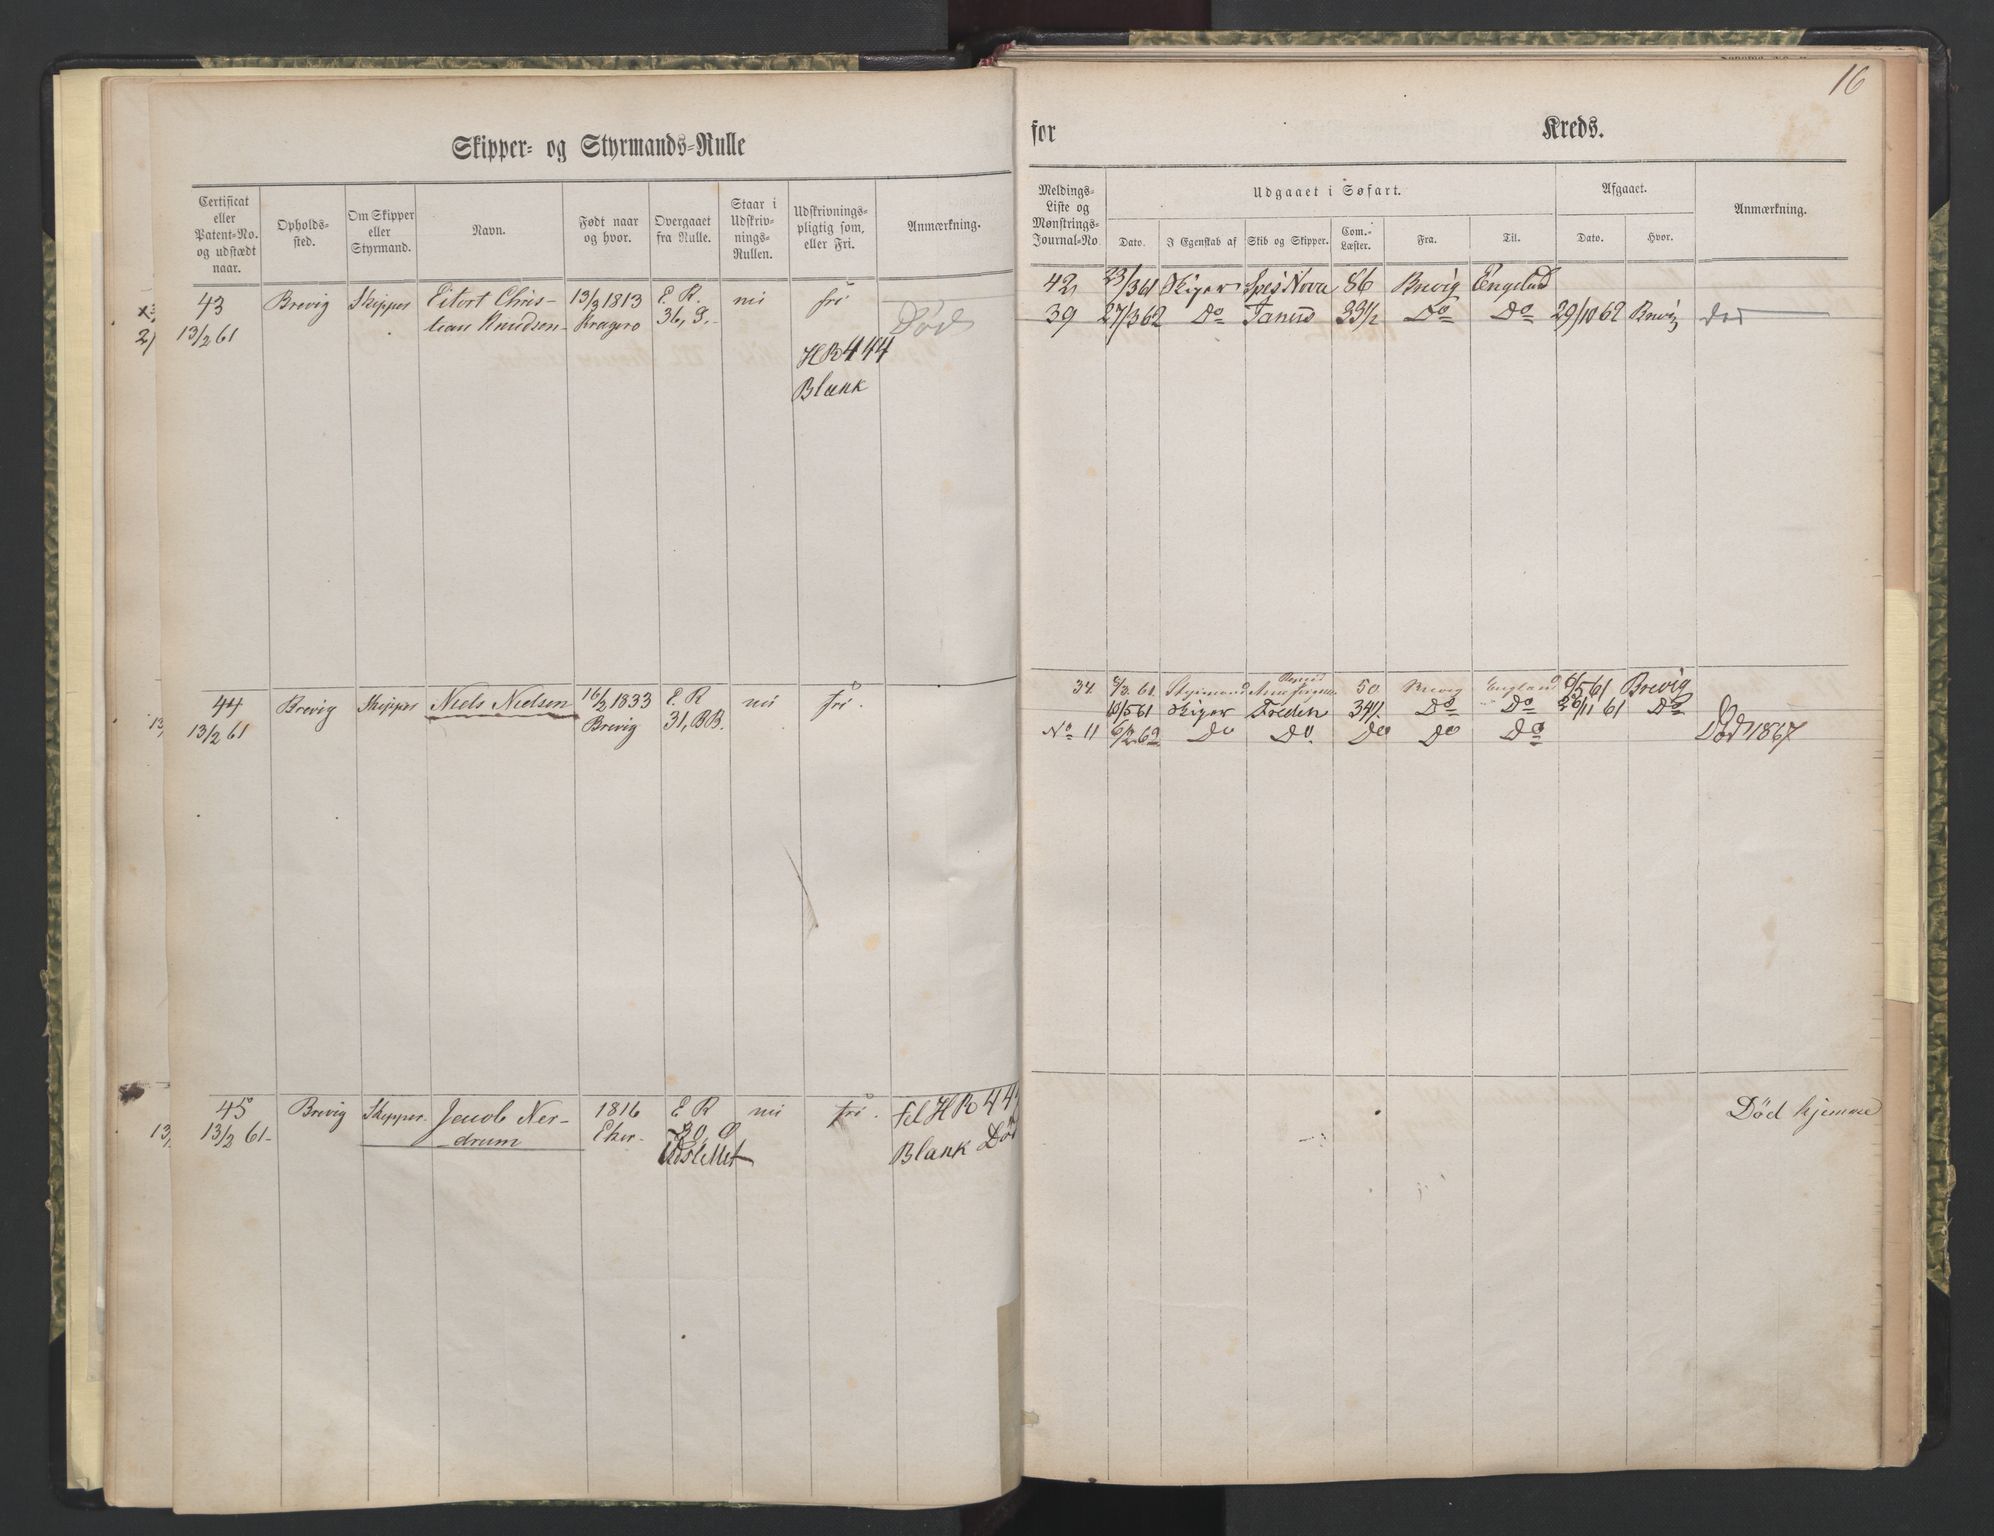 16
Skipper- og Styrmands-Rulle
for Kreds.
Certificat eller Patent-No. og udstædt naar.
Opholds-sted.
Om Skipper eller Styrmand.
Navn.
Født naar og hvor.
Overgaaet fra Rulle.
Staar i Udskriv-nings-Rullen.
Udskrivnings-pligtig som, eller Fri.
Anmærkning.
Meldings-Liste og Mønstrings-Journal-No.
Udgaaet i Søfart.
Dato.
I Egenskab af
Skib og Skipper.
Com.-Læster.
Fra.
Til.
Afgaaet.
Dato.
Hvor.
Anmærkning.
43 Brevig Skipper Eitert Chris- 13/3 1813 E. R. nei fri
13/2 61 tian Knudsen Kragerø 36, S. Død
HR 444
Blank
42 23/3 61 Skiper Spes Nova 86 Brevig England
39 27/3 62 Do 33 1/2 Do Do 29/10 62 Brevig død
44 Brevig Skipper Niels Nielsen 16/2 1833 E. R nei fri.
13/2 61 Brevig 31, BB.
34 Styrmand 50 Brevig England 6/5 61 Brevig
10/5 61 Skiper Freden 34 1/2 Do Do 61 Do
No 11 Do Do. Do Do Do Død 1867
45 Brevig Skipper. Jacob Ner- 1816 E R nei fri. HR 44
13/2 61 drum Eker Blank Død
Udslettet
Død hjemme